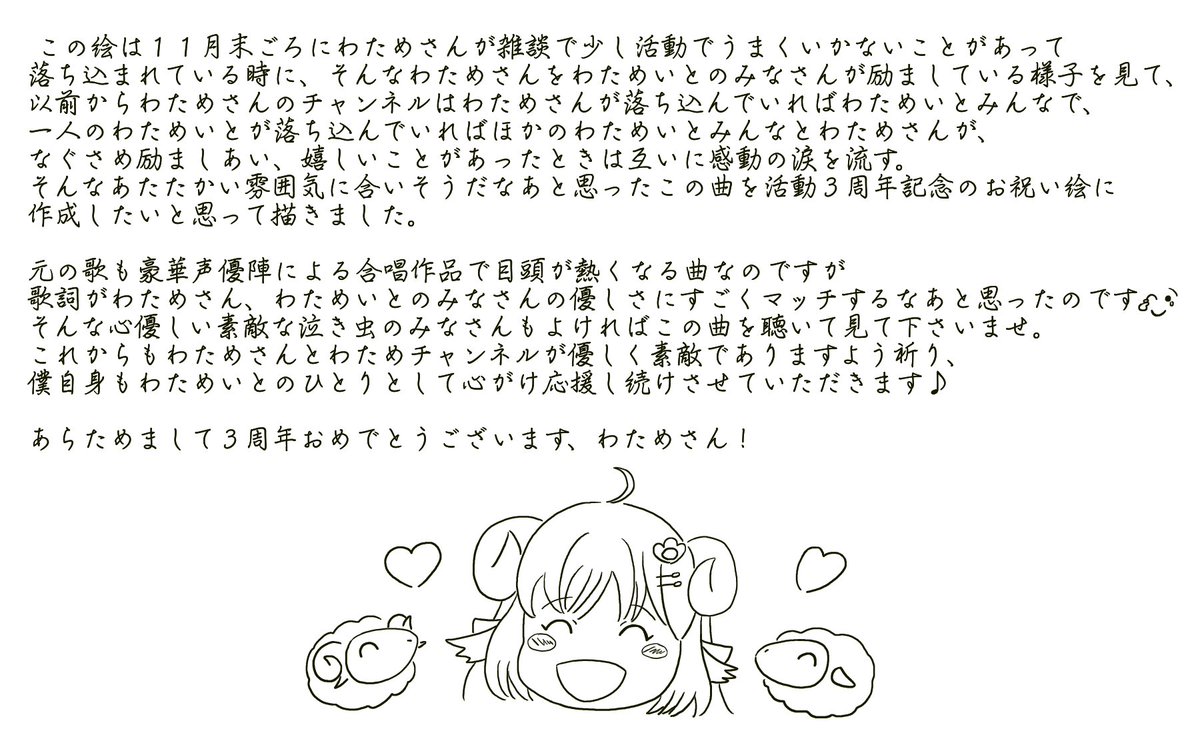 この絵は11月末ごろにわためさんが雑談で少し活動でうまくいかないことがあって
落ち込まれている時に、そんなわためさんをわためいとのみなさんが励ましている様子を見て、
以前からわためさんのチャンネルはわためさんが落ち込んでいればわためいとみんなで、
一人のわためいとが落ち込んでいればほかのわためいとみんなとわためさんが、
なぐさめ励ましあい、嬉しいことがあったときは互いに感動の涙を流す。
そんなあたたかい雰囲気に合いそうだなあと思ったこの曲を活動3周年記念のお祝い絵に
作成したいと思って描きました。
元の歌も豪華声優陣による合唱作品で目頭が熱くなる曲なのですが
歌詞がわためさん、わためいとのみなさんの優しさにすごくマッチするなあと思ったのです
そんな心優しい素敵な泣き虫のみなさんもよければこの曲を聴いて見て下さいませ。
これからもわためさんとわためチャンネルが優しく素敵でありますよう祈り、
僕自身もわためいとのひとりとして心がけ応援し続けさせていただきます♪
あらためまして3周年おめでとうございます、わためさん!